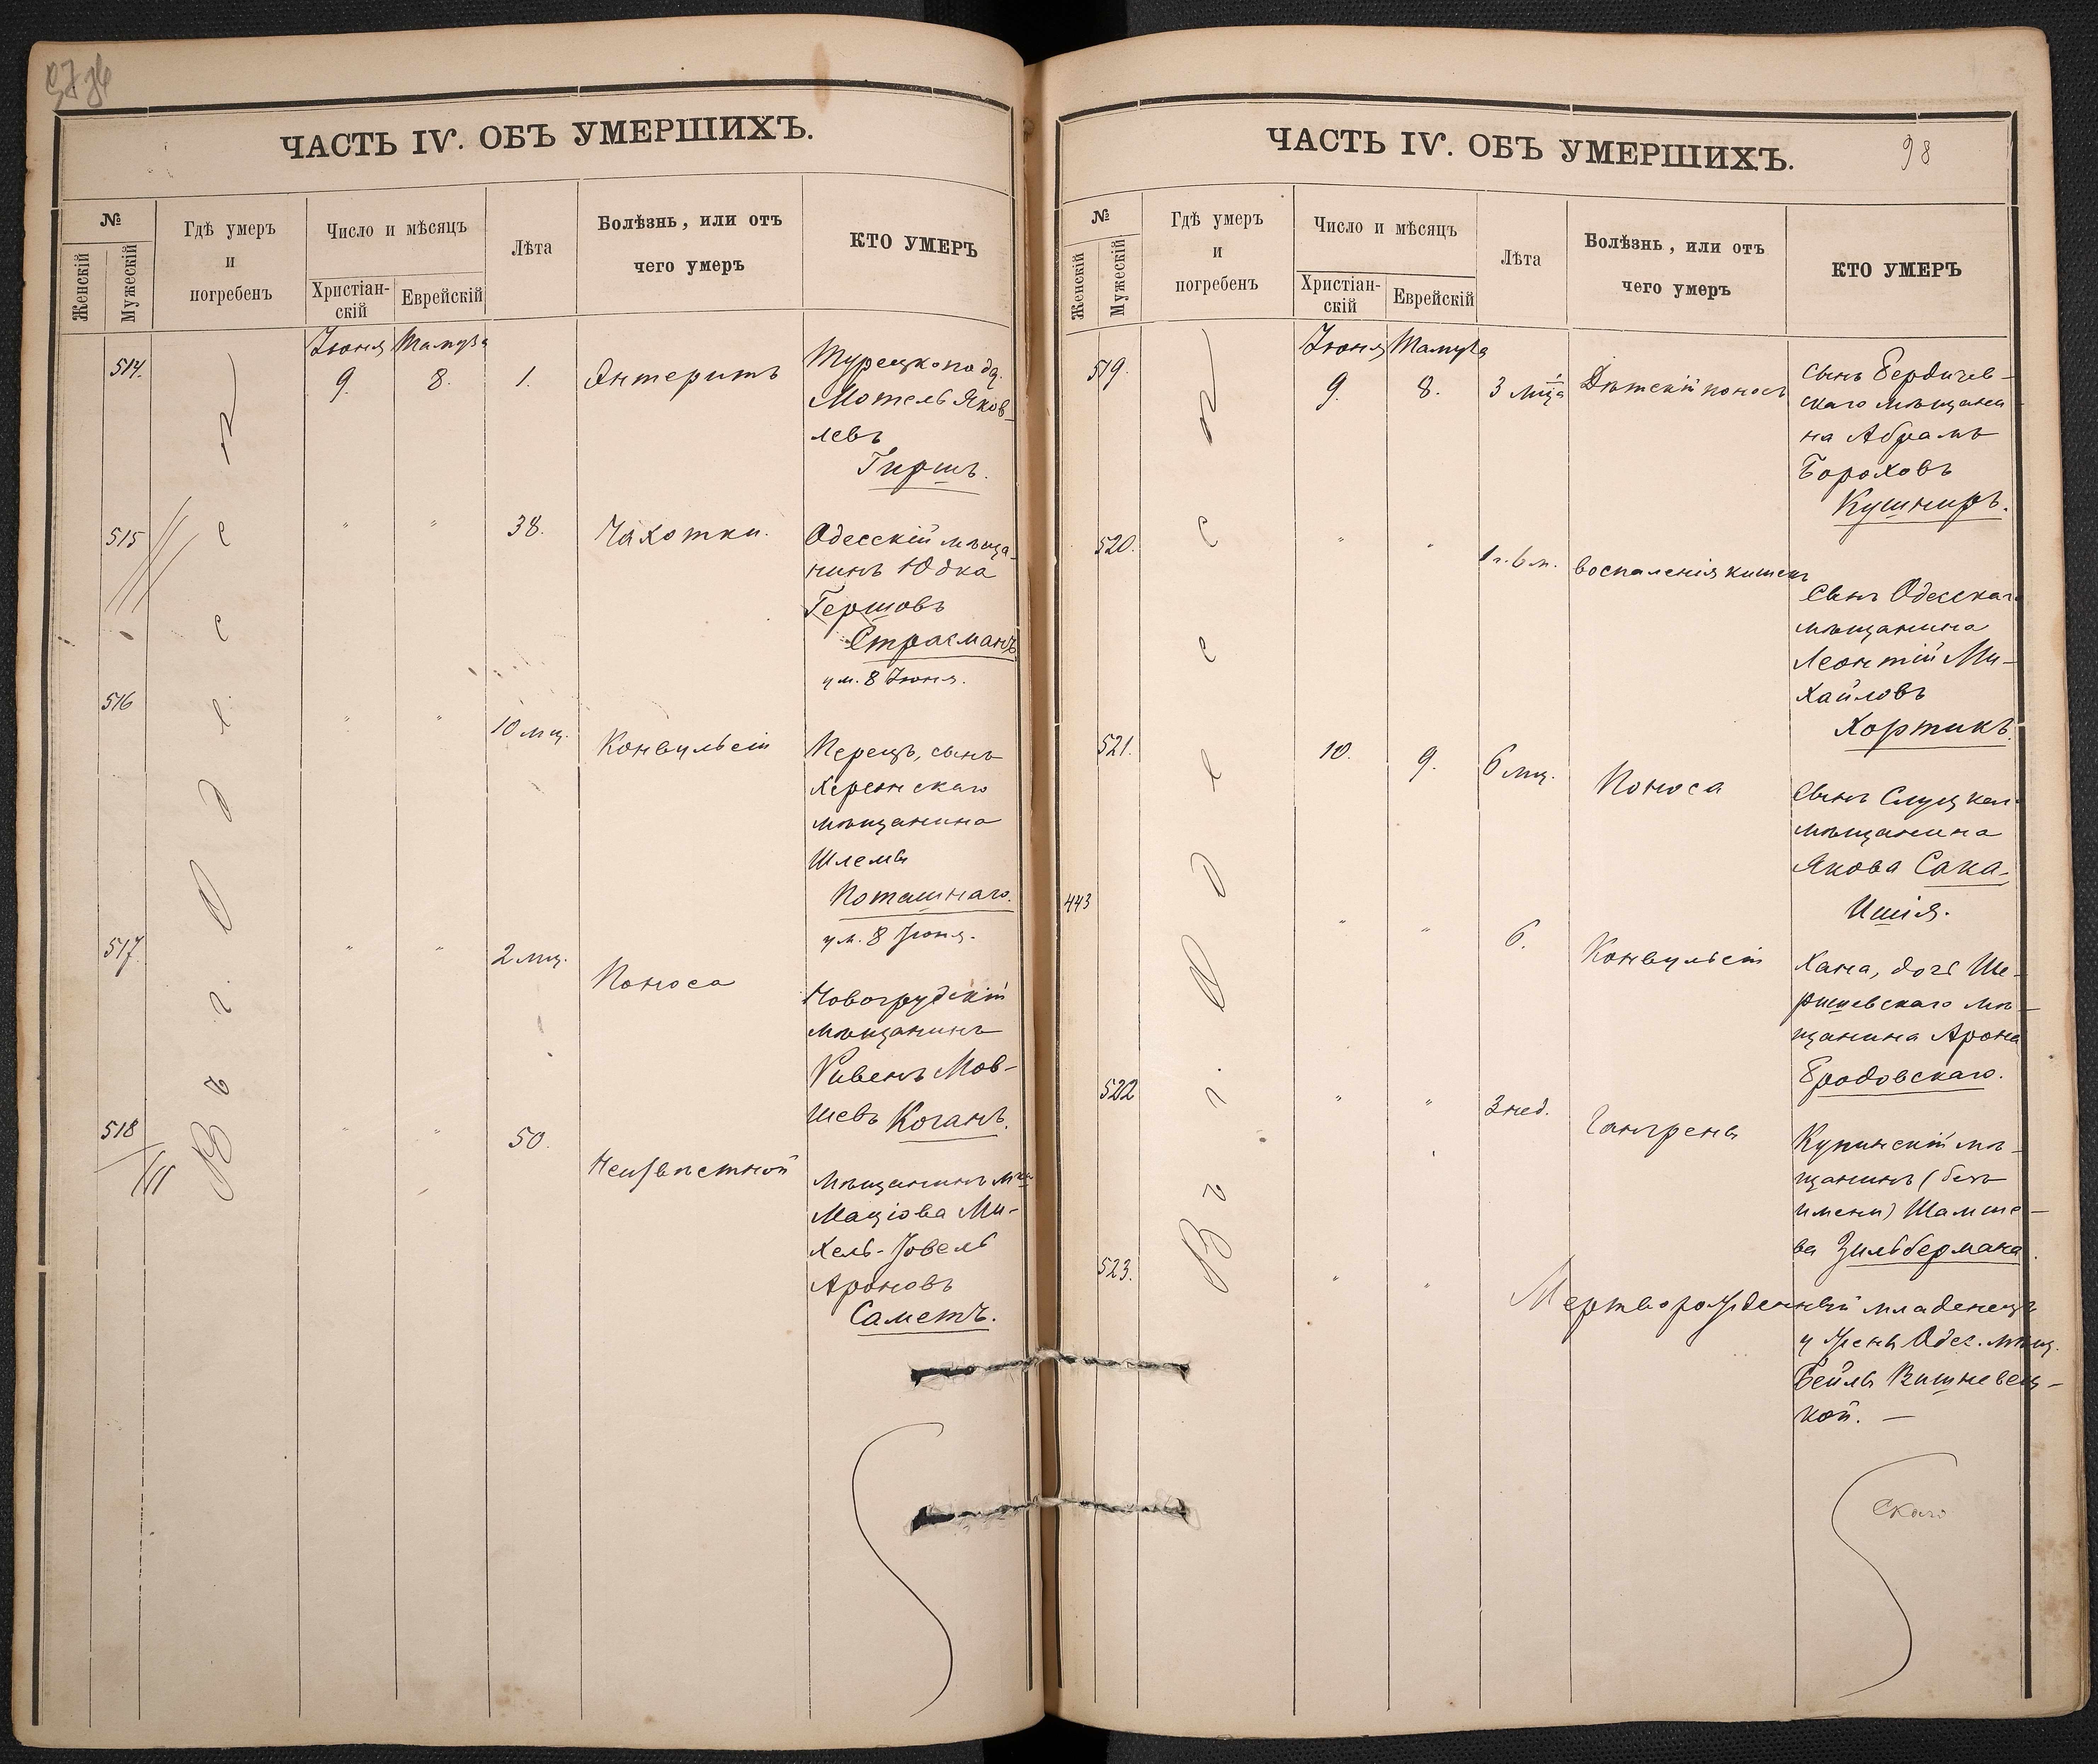 ЧАСТЬ IV. ОБЪ УМЕРШИХЪ.
№
Женскій
Мужескій
Гдѣ умеръ
и
погребенъ
Число и мѣсяцъ
Христіан-
скій
Еврейскій
Лѣта
Болѣзнь, или отъ
чего умеръ
КТО УМЕРЪ
Въ г. Одессѣ
Іюня Тамуза
514. 9. 8. 1. Энтеритъ
Турецкоподд.
Мотель Яков-
левъ
Гиршъ.
515 " " 38. Чахотки.
Одесскій мѣща-
нинъ Юдка
Гершовъ
Страсманъ
ум. 8 Іюня.
516 " " 10 мц. Конвульсіи
Перецъ, сынъ
Херсонскаго
мѣщанина
Шлемы
Поташнаго.
ум. 8 Іюня.
517 " " 2 мц. Поноса
Новогрудскій
мѣщанинъ
Рувенъ Мов-
шевъ Коганъ.
518 " " 50. Неизвѣстной
Мѣщанинъ м.
Маціова Ми-
хель-Іовель
Ароновъ
Саметъ.
ЧАСТЬ IV. ОБЪ УМЕРШИХЪ.
98
№
Женскій
Мужескій
Гдѣ умеръ
и
погребенъ
Число и мѣсяцъ
Христіан-
скій
Еврейскій
Лѣта
Болѣзнь, или отъ
чего умеръ
КТО УМЕРЪ
Въ г. Одессѣ
Іюня Тамуза
519. 9. 8. 3 мца Дѣтскій поносъ
Сынъ Бердичев-
скаго мѣщани-
на Абрамъ
Бороховъ
Кушниръ.
520. " " 1 г. 6 м. Воспаленія кишекъ
Сынъ Одесскаго
мѣщанина
Леонтій Ми-
хайловъ
Хортикъ.
521. 10. 9. 6 мц. Поноса
Сынъ Слуцкаго
мѣщанина
Якова Сака-
443 " " 6. Конвульсіи
Хана, дочь Ше-
мѣ-
щанина Арона
Бродовскаго.
522 " " 3 нед. Гангрены
мѣ-
щанинъ (безъ
имени)
ва Зильбермана.
523. " "
Мертворожденный младенецъ
у жены Одес. мѣщ.
Бейлы Вишневец-
кой. —
скаго